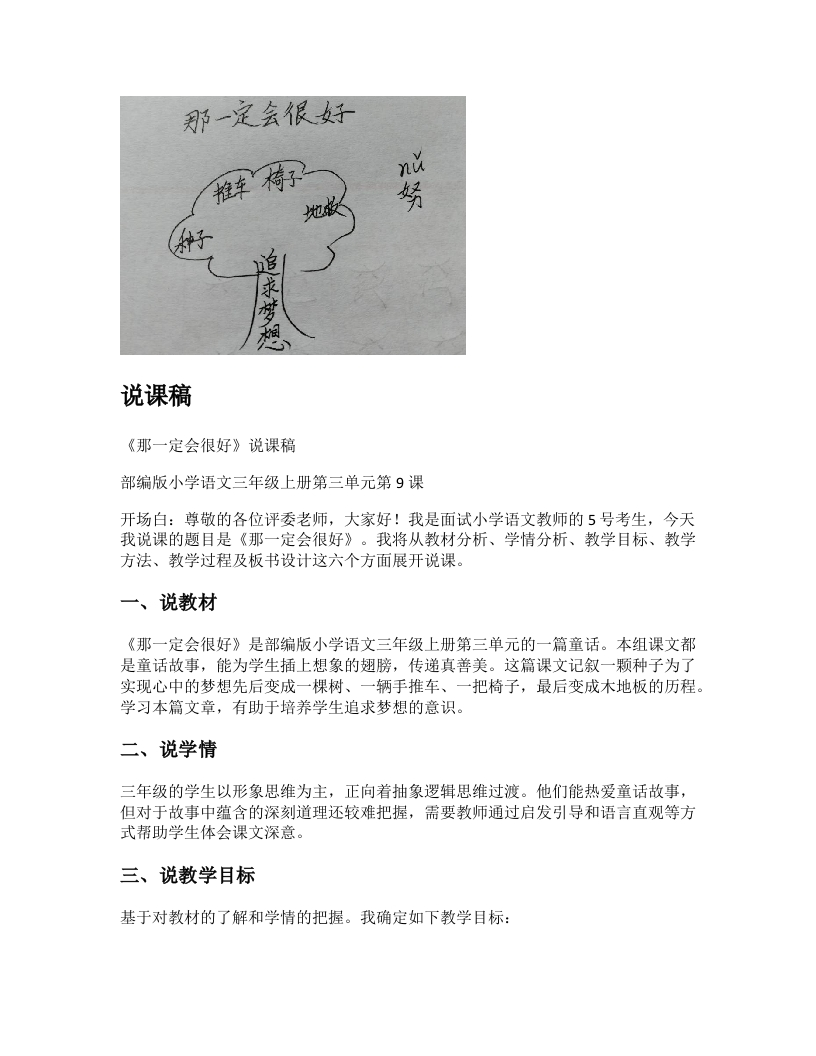 那一定会很好
推车 椅子
nǔ
努
地板
种子
追
求
梦
想
说课稿
《那一定会很好》说课稿
部编版小学语文三年级上册第三单元第 9 课
开场白：尊敬的各位评委老师，大家好！我是面试小学语文教师的 5 号考生，今天
我说课的题目是《那一定会很好》。我将从教材分析、学情分析、教学目标、教学
方法、教学过程及板书设计这六个方面展开说课。
一、说教材
《那一定会很好》是部编版小学语文三年级上册第三单元的一篇童话。本组课文都
是童话故事，能为学生插上想象的翅膀，传递真善美。这篇课文记叙一颗种子为了
实现心中的梦想先后变成一棵树、一辆手推车、一把椅子，最后变成木地板的历程。
学习本篇文章，有助于培养学生追求梦想的意识。
二、说学情
三年级的学生以形象思维为主，正向着抽象逻辑思维过渡。他们能热爱童话故事，
但对于故事中蕴含的深刻道理还较难把握，需要教师通过启发引导和语言直观等方
式帮助学生体会课文深意。
三、说教学目标
基于对教材的了解和学情的把握。我确定如下教学目标：